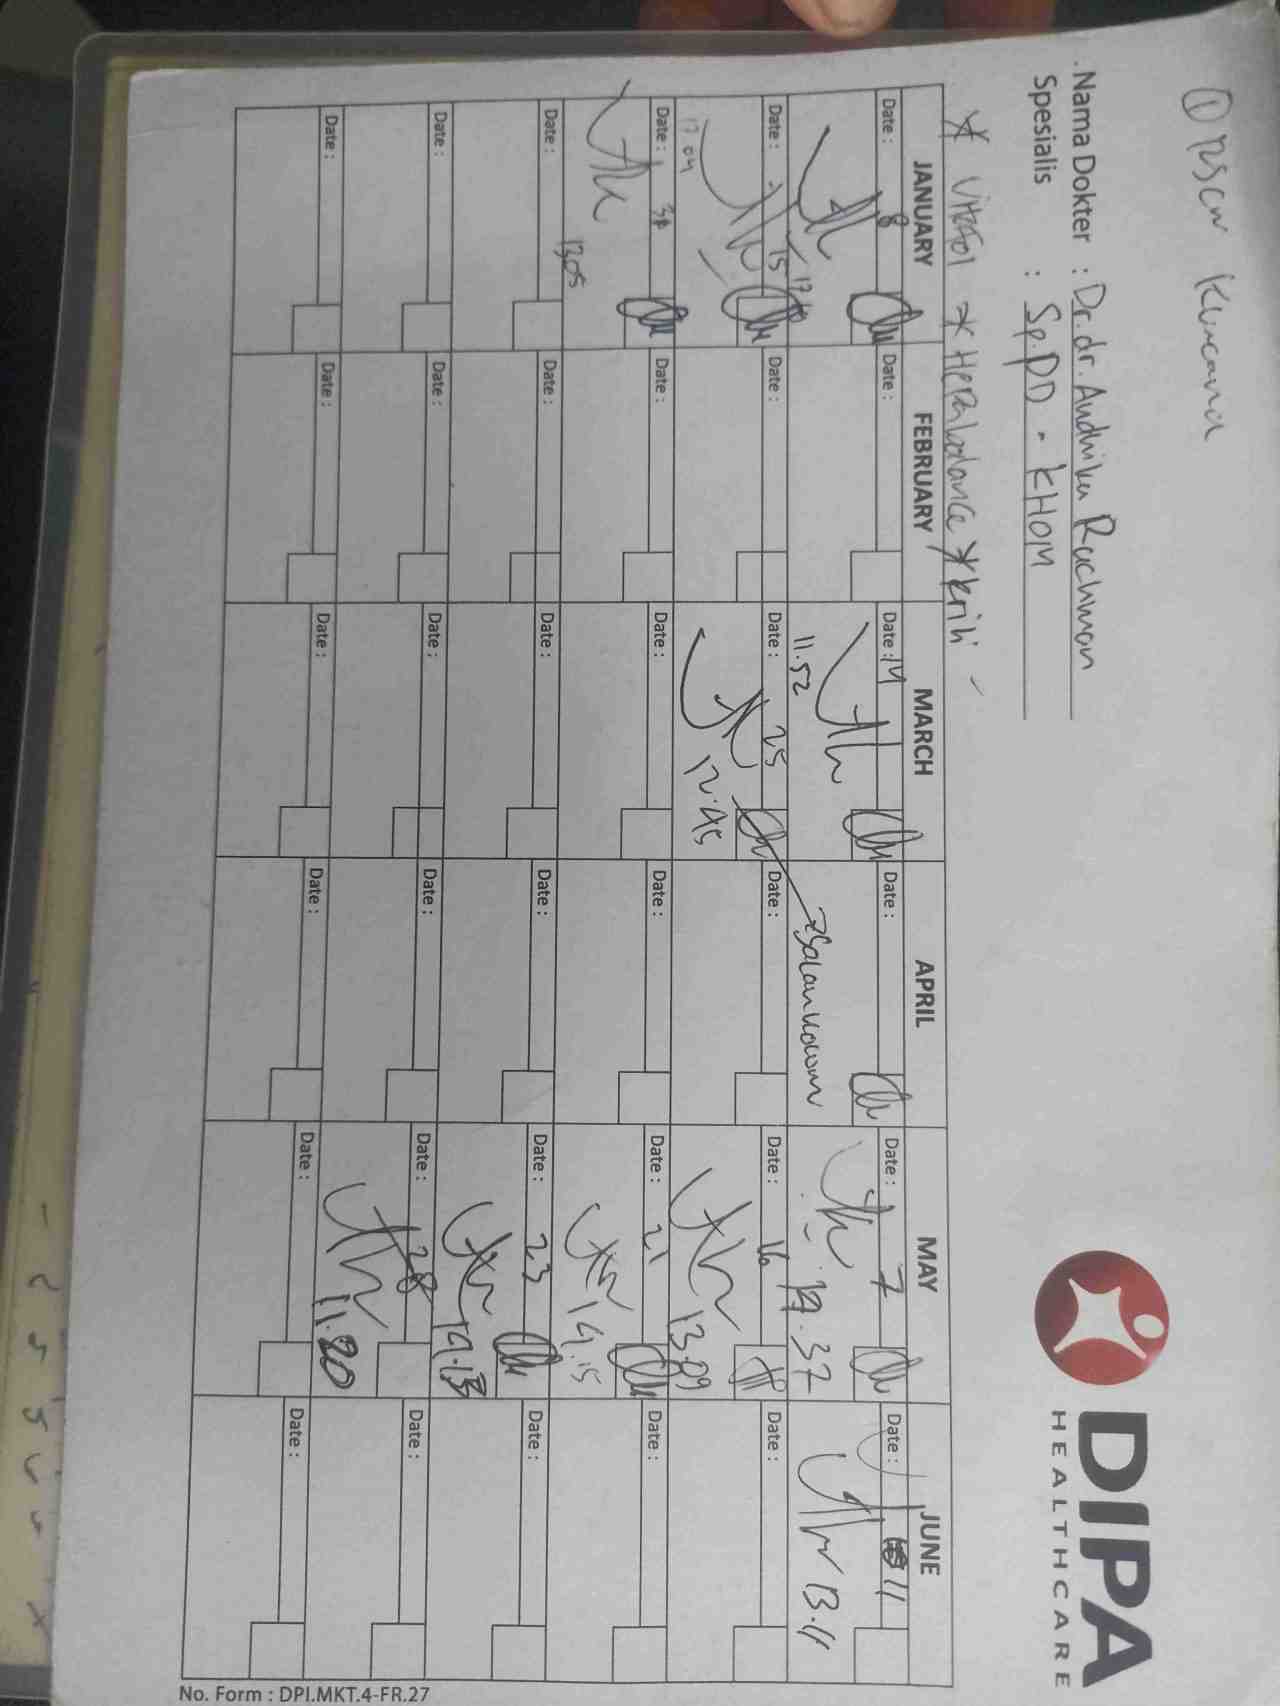 DIPA
HEALTHCARE
Nama Dokter : Dr. dr. Andhika Rachman
Spesialis : Sp.PD - KHOM
* Hepabalance *
JANUARY FEBRUARY MARCH APRIL MAY JUNE
Date : 8 Date : Date : 14 Date : Date : 7 Date : 11
11.52 13.11
Date : 15 Date : Date : 25 Date : Date : 16 Date :
17.04 12.45 13.09
Date : 31 Date : Date : Date : Date : 21 Date :
13.05 14.15
Date : Date : Date : Date : Date : 23 Date :
Date : Date : Date : Date : Date : 28 Date :
11.20
Date : Date : Date : Date : Date : Date :
No. Form : DPI.MKT.4-FR.27